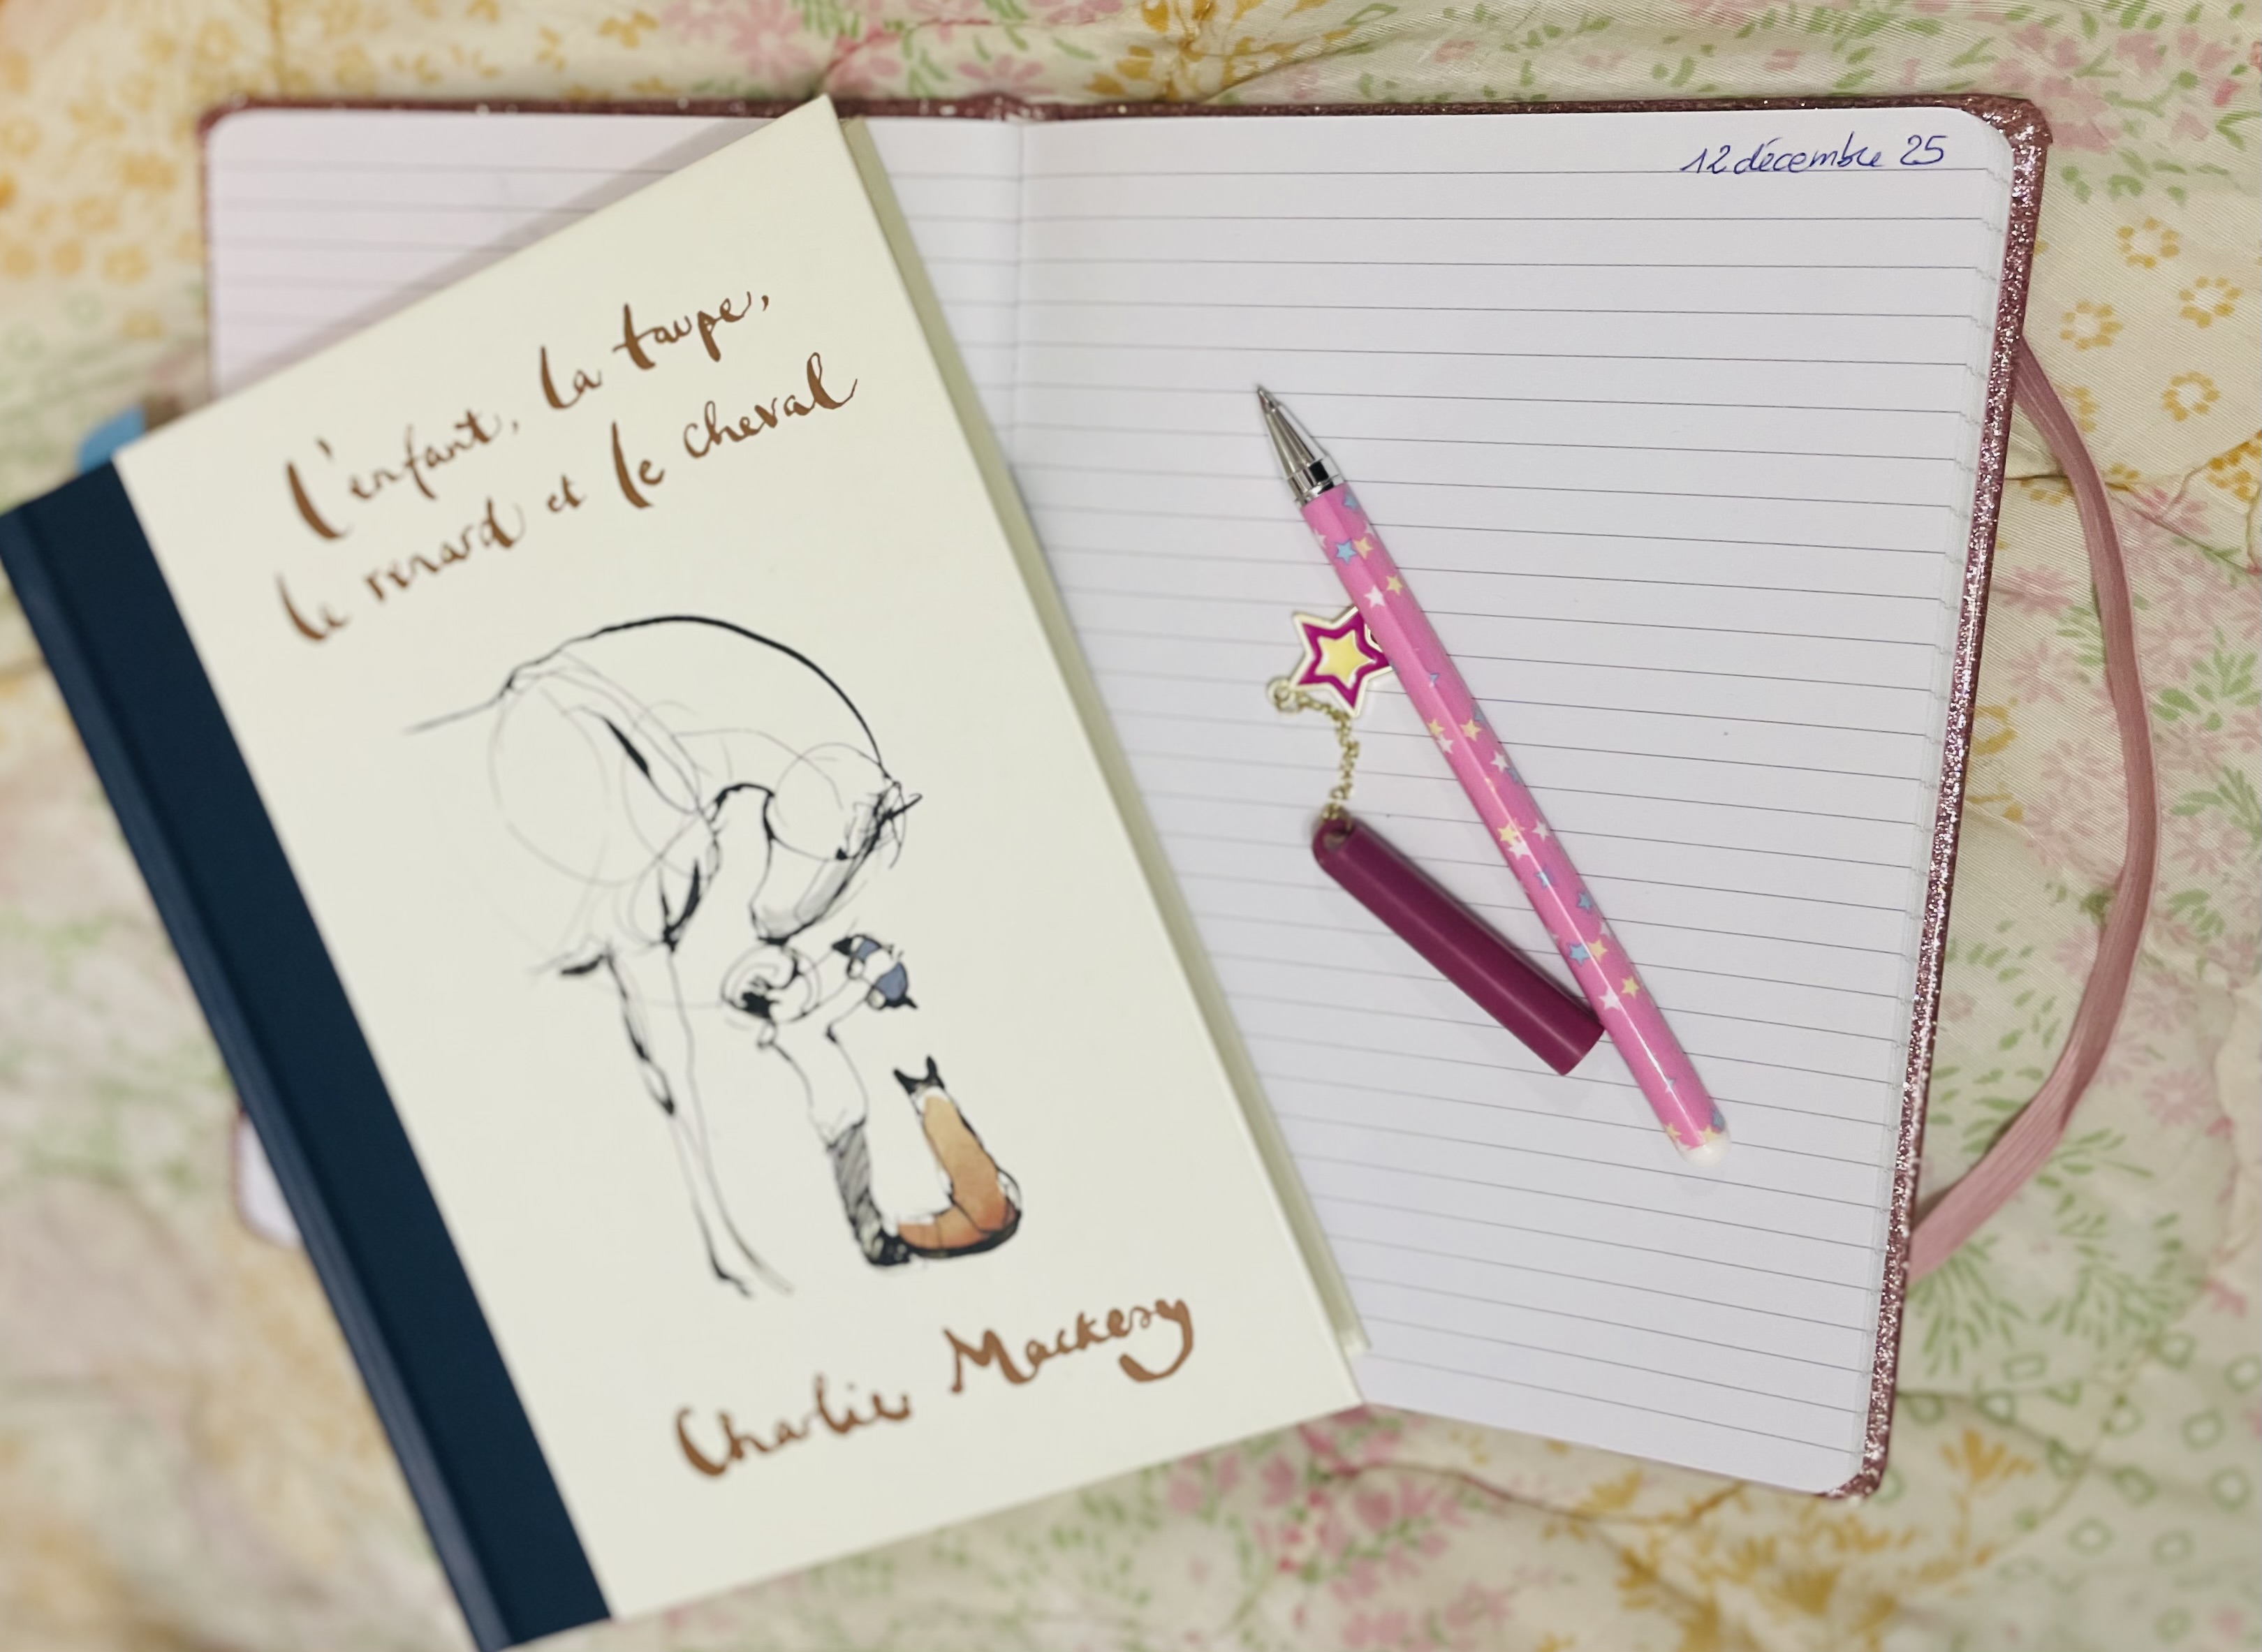 l'enfant, la taupe,
le renard et le cheval
Charlie Mackesy
12 décembre 25